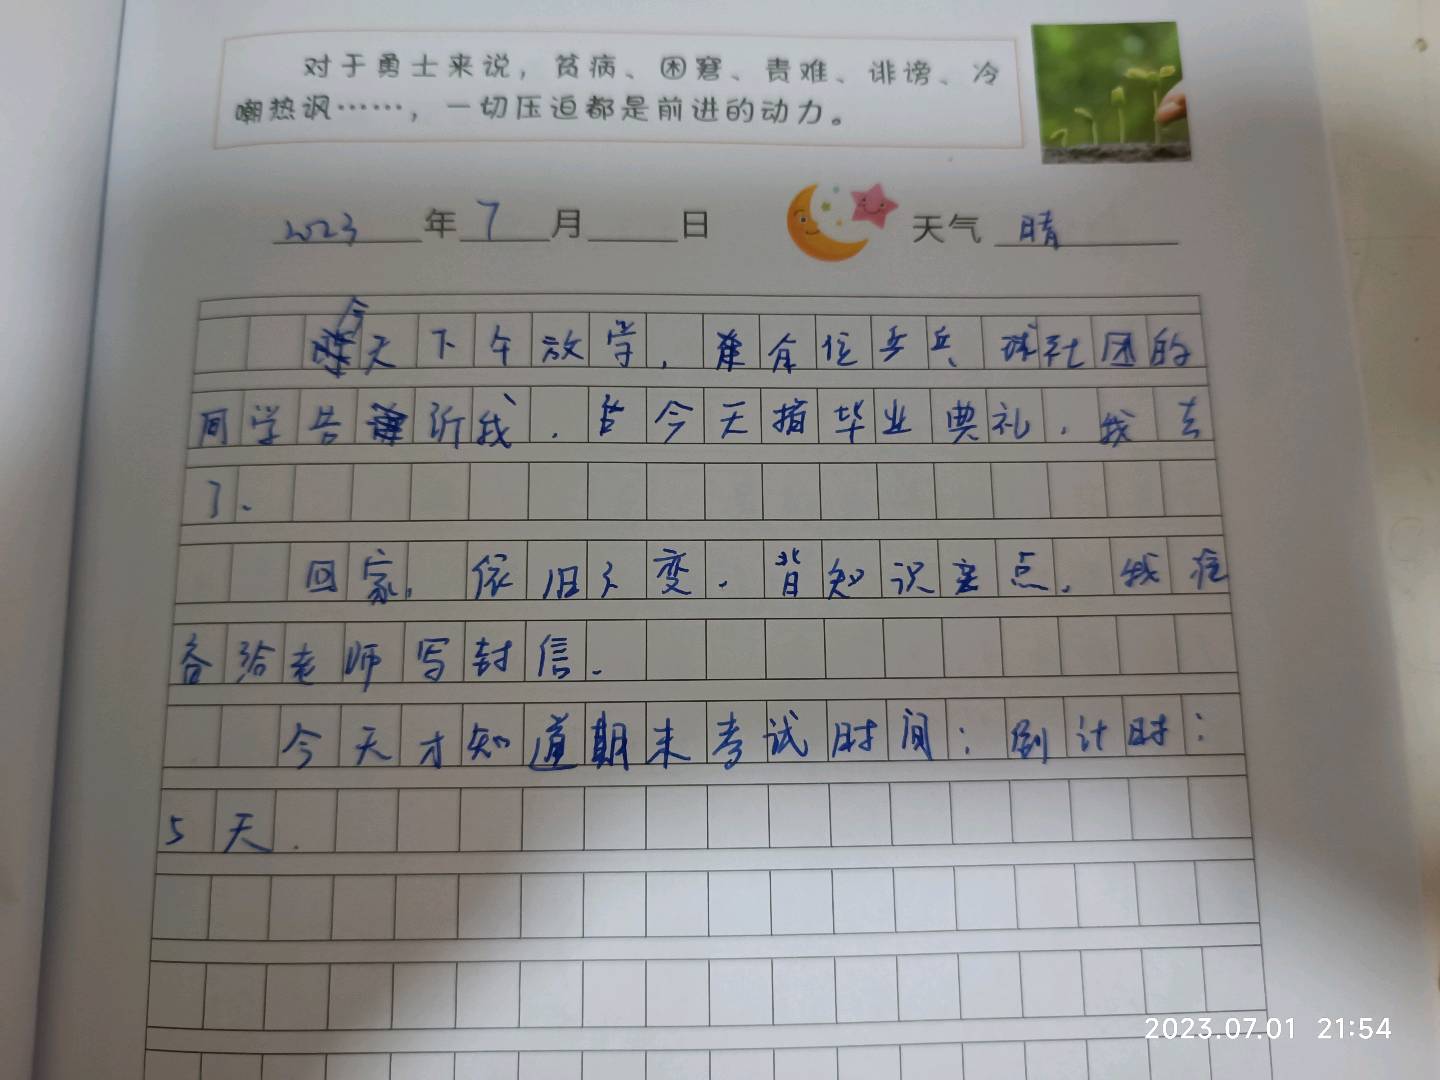 对于勇士来说，贫病、困窘、责难、诽谤、冷
嘲热讽……，一切压迫都是前进的动力。
2023年7月 日 天气 晴
今天下午放学，有位乒乓球社团的
同学告诉我，今天拍毕业典礼，我去
了。
回家，依旧不变，背知识点，我在
给老师写封信。
今天才知道期末考试时间：倒计时：
5天．
2023.07.01 21:54